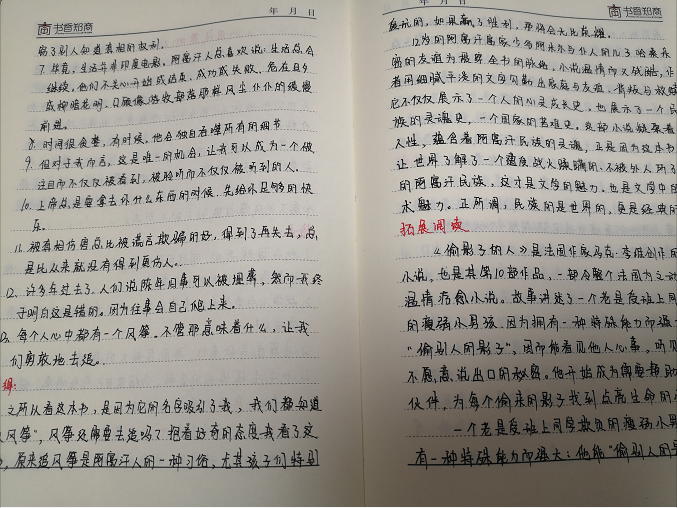 书香知商
年 月 日
了别人知道真相的权利。
7. 毕竟，生活并非印度电影。阿富汗人总喜欢说：生活总会
继续。他们不关心开始或结束、成功或失败、危在旦夕
或柳暗花明，只顾像游牧部落那样风尘仆仆的缓慢
前进。
8. 时间很贪婪，有时候，他会独自吞噬所有的细节
9. 但对于我而言，这是唯一的机会，让我可以成为一个被
注目而不仅仅被看到，被聆听而不仅仅被听到的人。
10. 上帝总是要拿去你什么东西的时候，先给你足够的快
乐。
11. 被真相伤害总比被谎言欺骗的好，得到了再失去，总
是比从来就没有得到更伤人。
12. 许多年过去了，人们说陈年旧事可以被埋葬，然而我终
于明白这是错的。因为往事会自己爬上来。
13. 每个人心中都有一个风筝。不管那意味着什么，让我
们勇敢地去追。
得：
之所以看这本书，是因为它的名字吸引了我，我们都知道
风筝"，风筝还需要去追吗？抱着好奇的态度我看了这
，原来追风筝是阿富汗人的一种习俗，尤其孩子们特别
年 月 日
书香知商
玩的，如果赢了胜利，那将会无比荣耀。
12岁的阿富汗富家少爷阿米尔与仆人的儿子哈桑
的友谊为极弊全书的脉络，小说温情而又残酷，作
者用细腻平淡的文字勾勒出家庭与友谊、背叛与救赎
它不仅仅展示了一个人的心灵成长史，也展示了一个民
族的灵魂史，一个国家的苦难史。
人性，蕴含着阿富汗民族的灵魂，正是因为这本书
让世界了解了一个战火蹂躏的、不被外人所
的阿富汗民族，这才是文学的魅力，也是文学中的
水魅力。正所谓，民族的是世界的，更是经典的
拓展阅读
《偷影子的人》是法国作家马克·李维创作的
小说，也是其第10部作品，一部令整个法国为之动
温情疗愈小说。故事讲述了一个老是受班上同
的瘦弱小男孩，因为拥有一种特殊能力而强
"偷别人的影子"，因而能看见他人心事，听见
不愿意说出口的秘密。他开始成为需要帮助
伙伴，为每个偷来的影子找到点亮生命的
一个老是受班上同学欺负的瘦弱小男
有一种特殊能力而强大：他能"偷别人的影